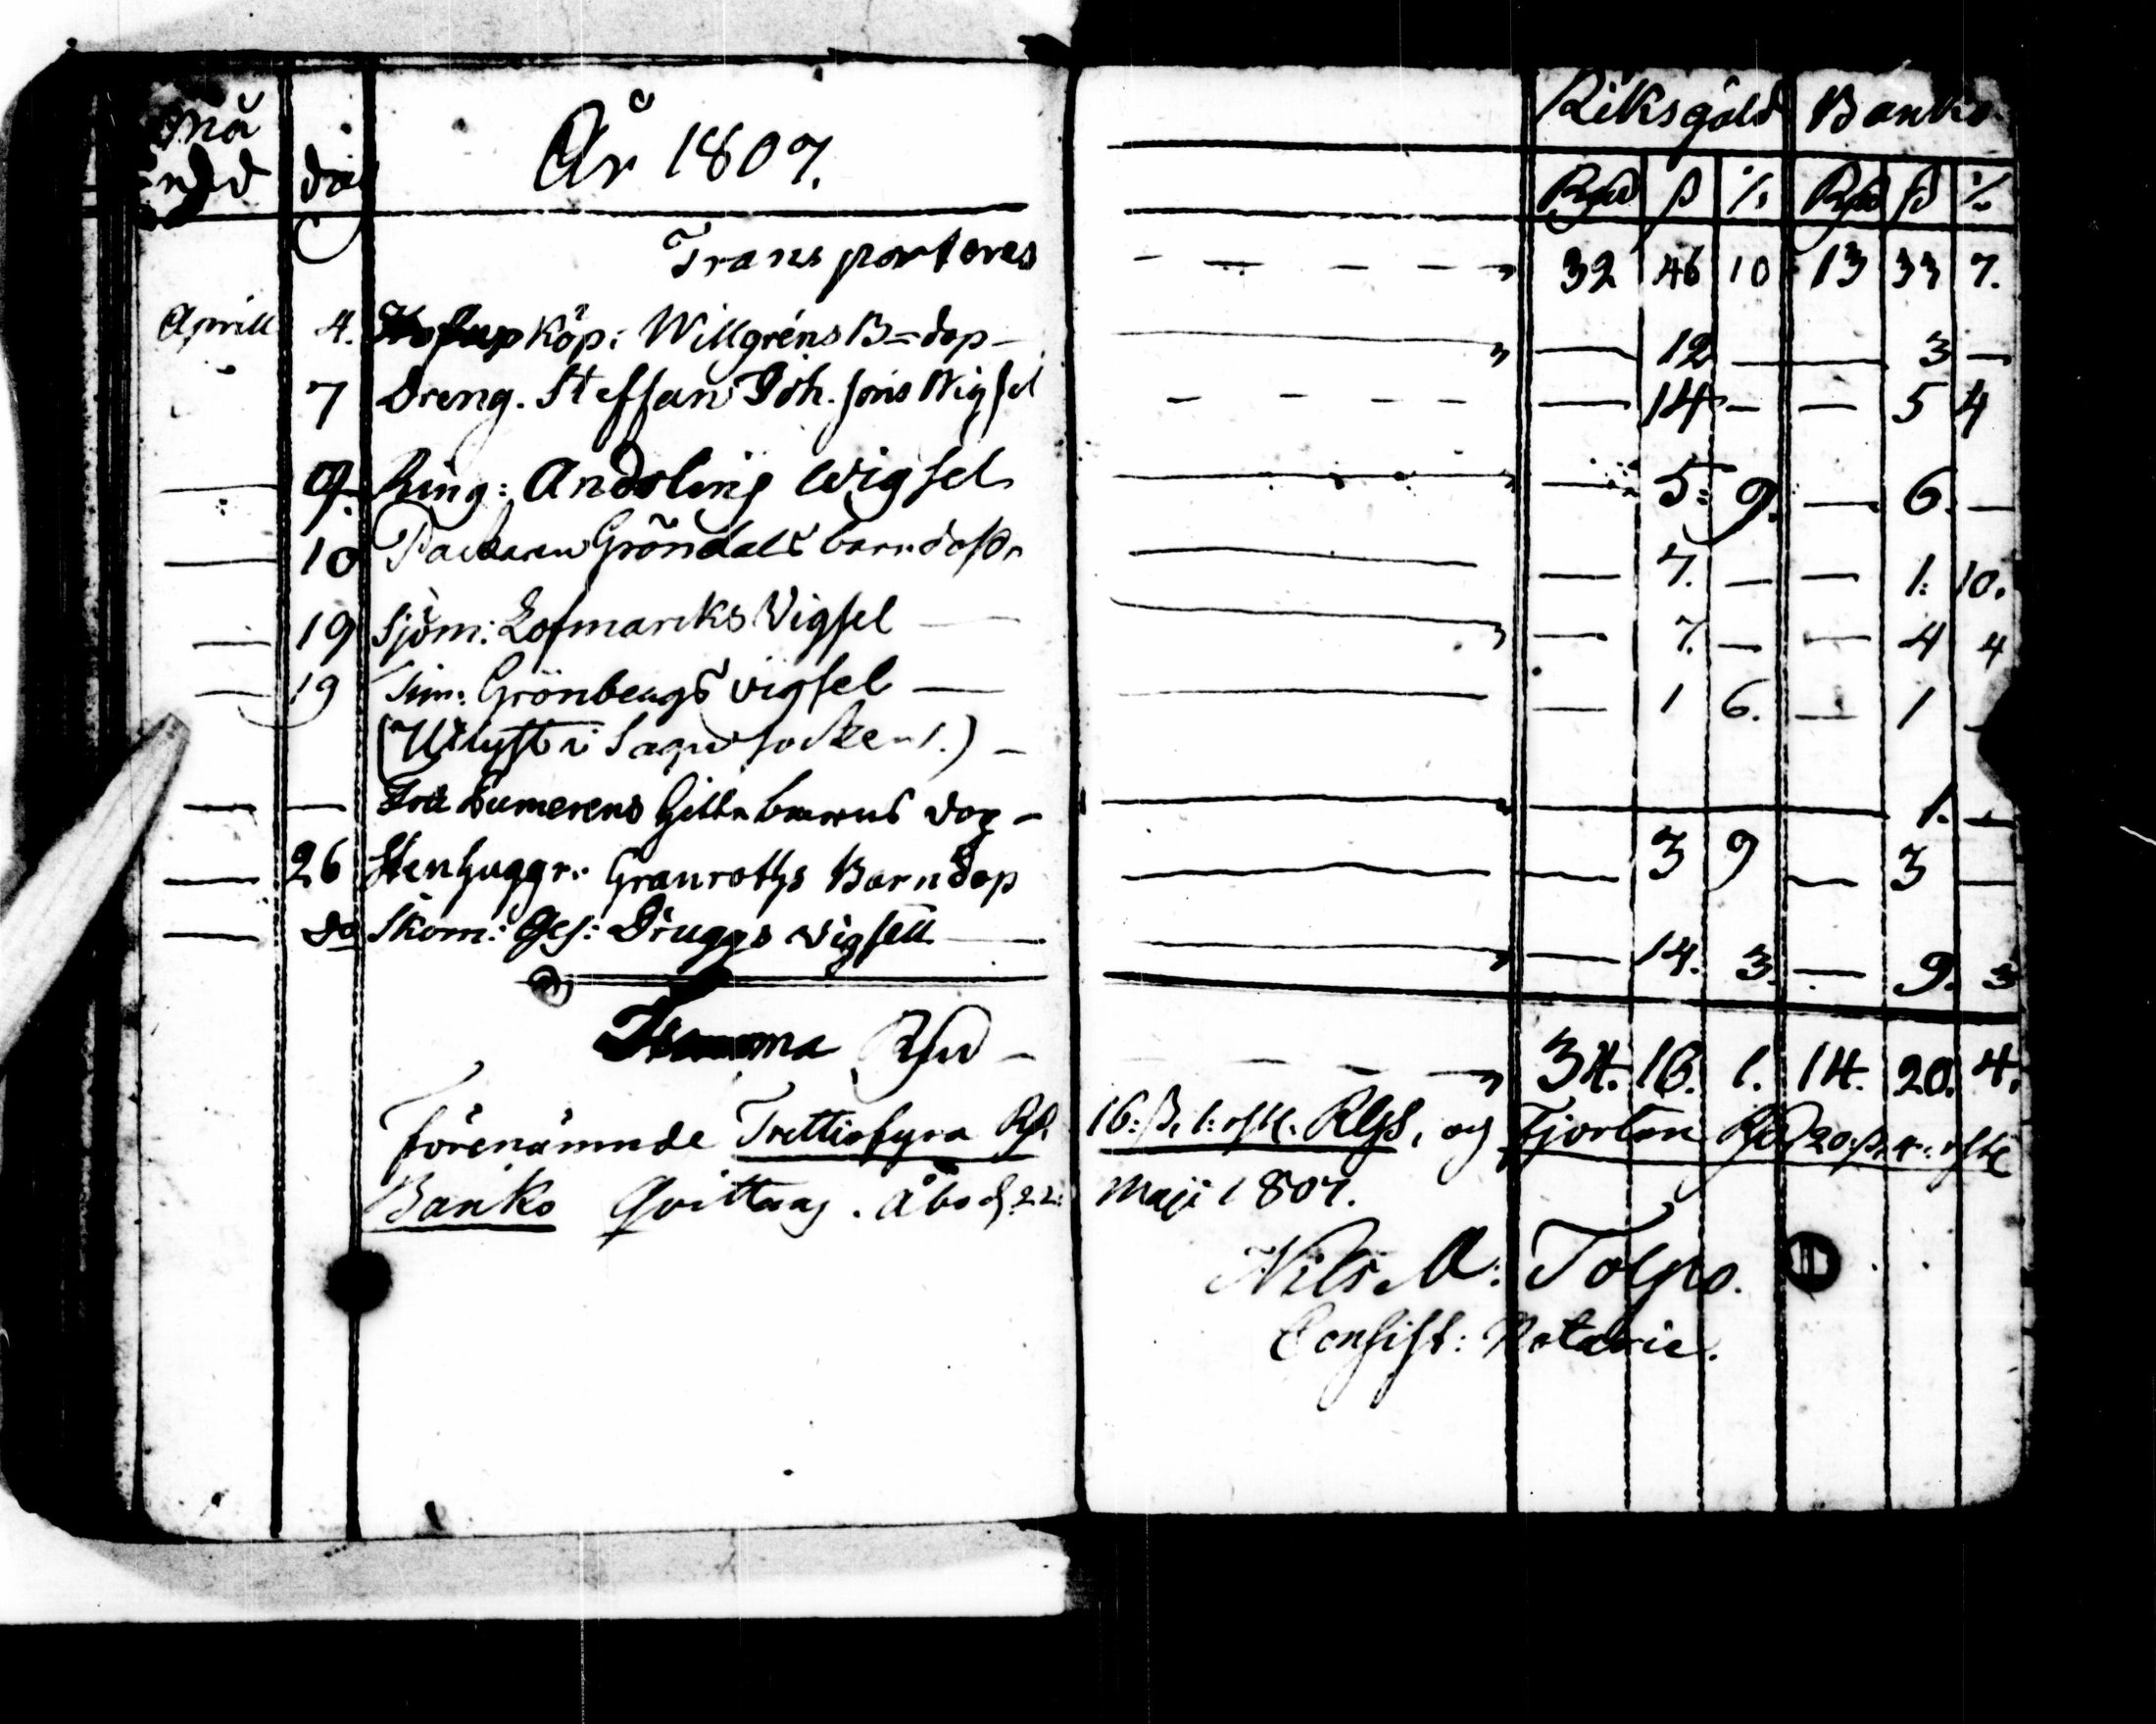 Må
nad dag År 1807. Riksgäld Banko.
Rd ß /. Rd ß /.
Transporteres 32 46 10 13 33 7.
Aprill 4. köp: Willgréns B-dop - 12 - 3 -
7 Dreng. Steffan Joh. sons Wigsel - 14 - - 5 4
- 9. Ring: Andsling Wigsel - 5: 9. - 6. -
- 10 Packaren Gröndals barndop - 7. - - 1: 10.
- 19 Sjöm: Lofmarcks Vigsel - 7. - - 4 4
- 19 Tim: Grönbergs vigsel - 1 6. - 1 -
( i Sagu socken.) -
- - dop - 1. -
- 26 Stenhuggr: Granroths Barndop - 3 9 - 3 -
- do Skom: Ges: Druggs vigsell - 14. 3. - 9. 3
Summa Rd - 34. 16. 1. 14. 20. 4.
förenämnde Trettiofyra Rd. 16: ß, 1: rst. Rgs, og Fjorton Rd 20: ß. 4: rst
Banko Qvitteras. Åbo d. 22: Maji 1807.
Nils A: Tolpo.
Consist: Notarie.